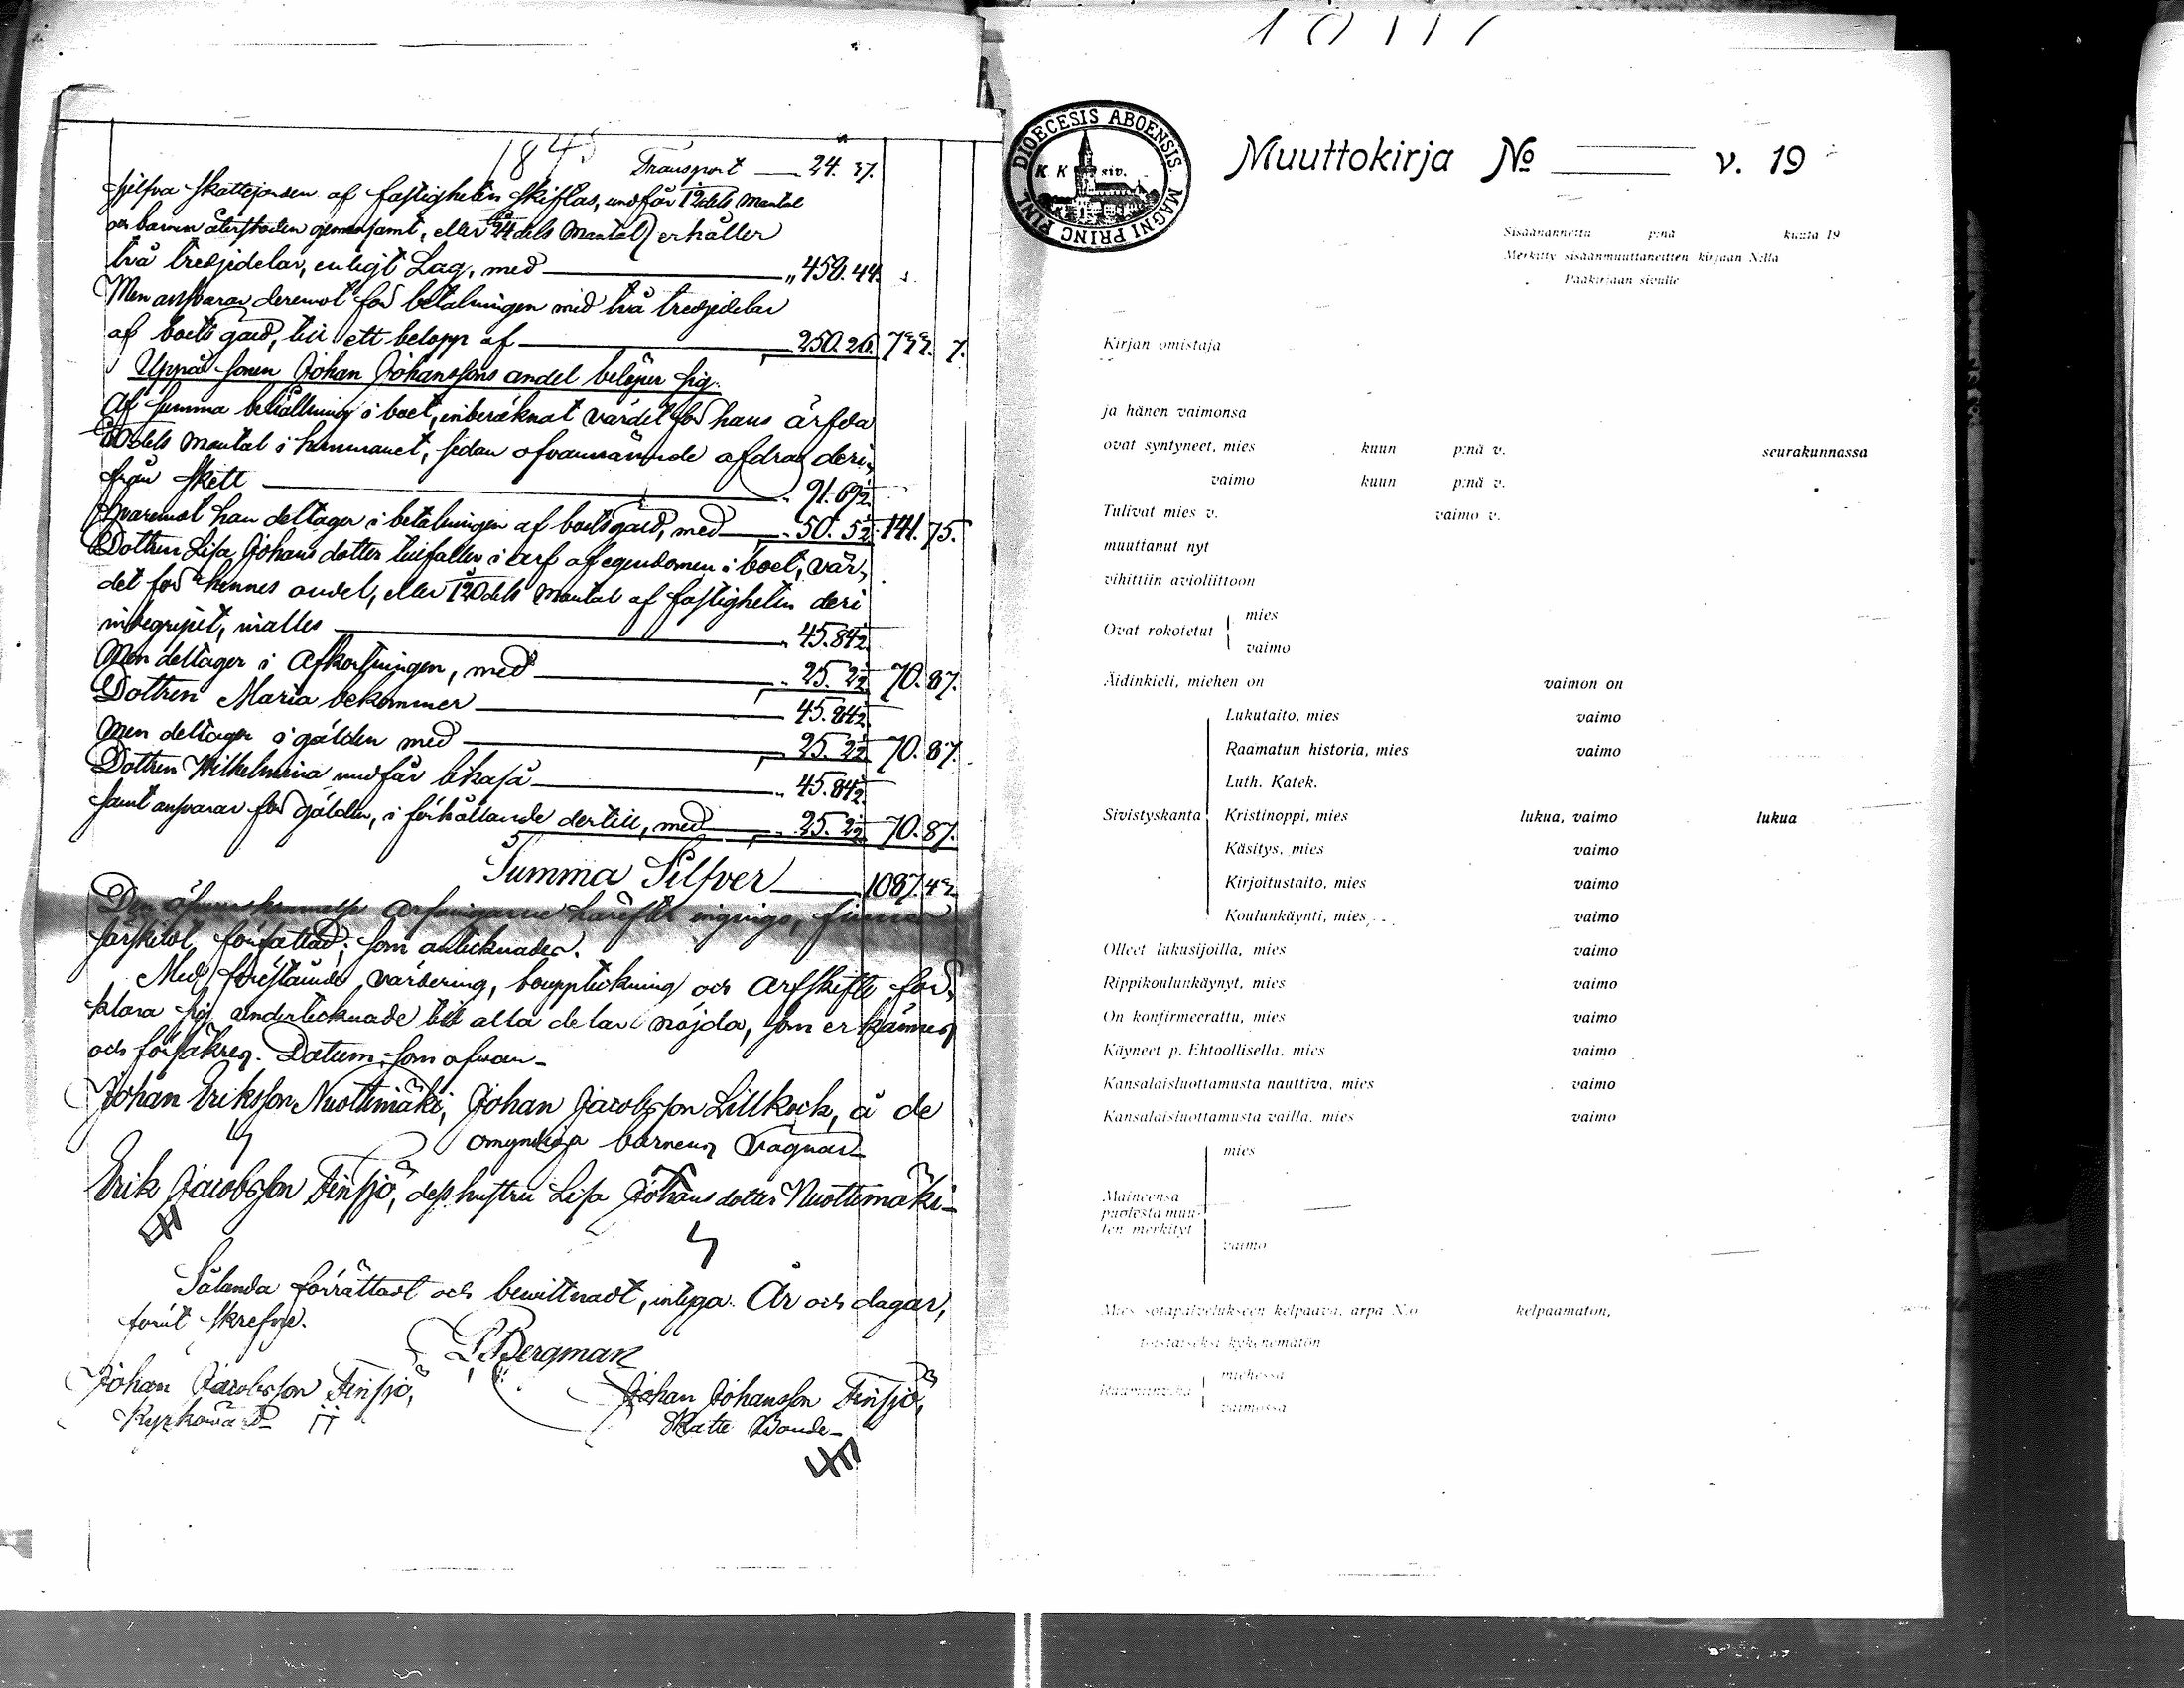 184
Transport — 24. 37.
sjelfva skattejorden af fastigheten skiftas, undfår 12dels mantal
och barnen återstoden gemensamt, eller 24dels Mantal) erhåller
två tredjedelar, enligt Lag, med — „ 450. 44.
Men ansvarar deremot for betalningen med två tredjedelar
af boets gäld, till ett belopp af — 250. 26. 7.
Uppå sonen Johan Johanssons andel belöper sig.
Af summa behållning i boet, inberäknat värdet för hans ärfda
dels mantal i hemmanet, sedan ofvannämnde afdrag deri,,
från skett — „ 91. 09½
Hvaremot han deltager i betalningen af boets gäld, med — „ 50. 52 141. 75.
Dottren Lisa Johans dotter tillfaller i arf af egendomen i boet, vär,,
det for hennes andel, eller 120dels Mantal af fastigheten deri
inbegripet, inalles — „ 45. 84½
Men deltager i Afkortningen, med — „ 25. 2½ 70. 87.
Dottren Maria bekommer — 45. 84½
Men deltager i gälden med — „ 25. 2½ 70. 87.
Dottren Wilhelmina undfår likaså — „ 45. 84½
samt ansvarar för gälden, i förhållande dertill, med — „ 25. 2½ 70. 87.
Summa Silfver — 1087. 4
arfvingarne härefter ingingo, finnes
särskilt författad; som antecknades.
Med förestånde värdering, bouppteckning och Arfskifte för,,
klara sig undertecknade till alla delar nöjda, som erkännes
och försäkres. Datum som ofvan_
Johan Eriksson Nuottimäki, Johan Jacobsson Lillkock, å de
omyndiga barnens vägnar_
Erik Jacobsson Finsjö, dess hustru Lisa Johans dotter Nuottimäki_
Sålunda förrättadt och bewittnadt, intyga. År och dagar,
förut skrefne.
Bergman
Johan Jacobsson Finsjö, Johan Johansson Finsjö,
Kyrkovärd_ Skatte Bonde_
DIOECESIS ABOENSIS. MAGNI PRINC FINL.
K. K siv.
Muuttokirja № v. 19
Sisäänannettu p:nä kuuta 19
Merkitty sisäänmuuttaneitten kirjaan N:lla
Pääkirjaan sivulle
Kirjan omistaja
ja hänen vaimonsa
ovat syntyneet, mies kuun p:nä v. seurakunnassa
vaimo kuun p:nä v.
Tulivat mies v. vaimo v.
muuttanut nyt
vihittiin avioliittoon
mies
Ovat rokotetut
vaimo
Äidinkieli, miehen on vaimon on
Lukutaito, mies vaimo
Raamatun historia, mies vaimo
Luth. Katek.
Sivistyskanta Kristinoppi, mies lukua, vaimo lukua
Käsitys, mies vaimo
Kirjoitustaito, mies vaimo
Koulunkäynti, mies vaimo
Olleet lukusijoilla, mies vaimo
Rippikoulunkäynyt, mies vaimo
On konfirmeerattu, mies vaimo
Käyneet p. Ehtoollisella, mies vaimo
Kansalaisluottamusta nauttiva, mies vaimo
Kansalaisluottamusta vailla, mies vaimo
mies
Maineensa
puolesta muu-
ten merkityt
vaimo
Mies sotapalvelukseen kelpaava, arpa N:o kelpaamaton,
toistaiseksi kykenemätön
miehessä
vaimossa